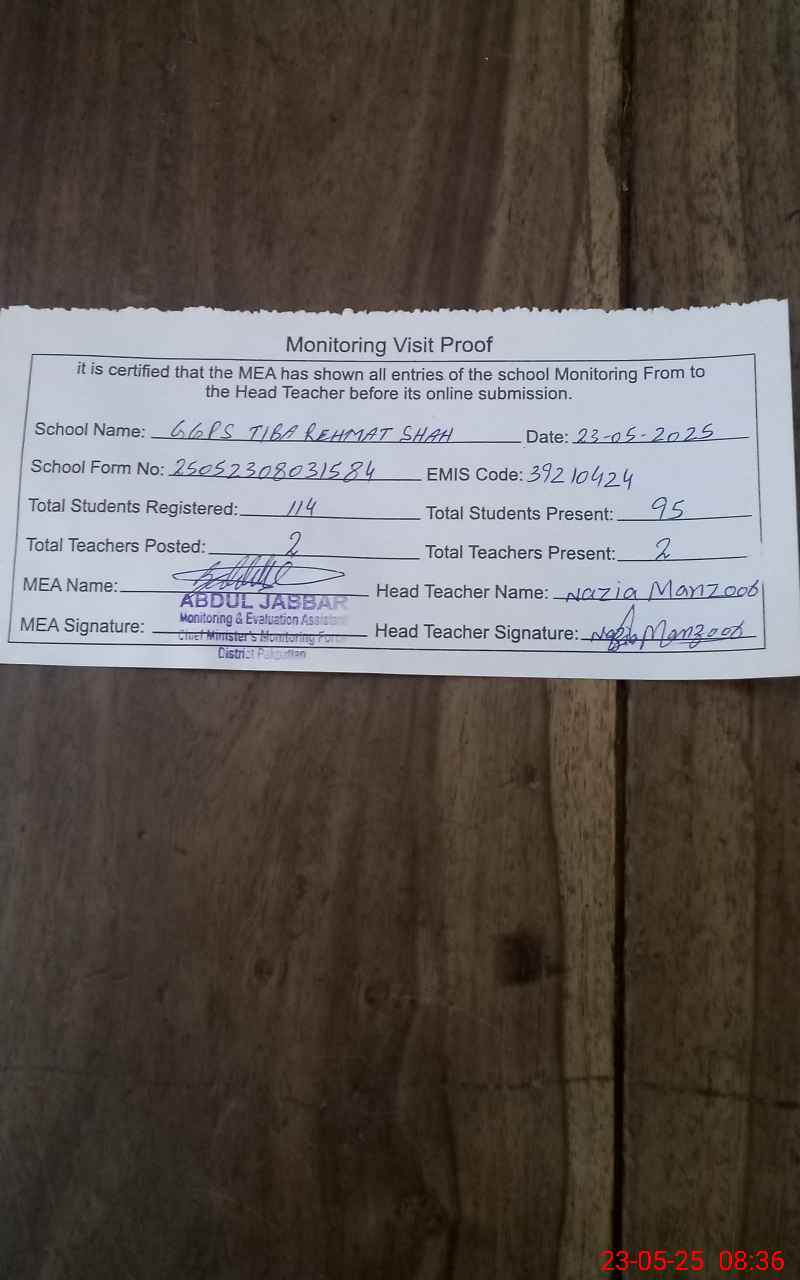 Monitoring Visit Proof
it is certified that the MEA has shown all entries of the school Monitoring From to
the Head Teacher before its online submission.
School Name: GGPS TIBA REHMAT SHAH Date: 23-05-2025
School Form No: 25052308031584 EMIS Code: 39210424
Total Students Registered: 114 Total Students Present: 95
Total Teachers Posted: 2 Total Teachers Present: 2
MEA Name: Head Teacher Name: Nazia Manzoor
ABDUL JABBAR
Monitoring & Evaluation Assistant
MEA Signature: Head Teacher Signature: Nazia Manzoor
Chief Minister's Monitoring Force
District Pakpattan
23-05-25 08:36